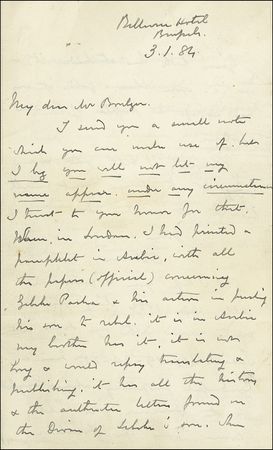 Bellevue Hotel
Brussels.
3.1.84
My dear Mr Boulger.
I send you a small note
which you can make use of. but
I beg you will not let my
name appear under any circumstances
I trust to your honour for that.
When in London. I had printed a
pamphlet in Arabic, with all
the papers (official) concerning
Zebehr Pasha & his action in pushing
his son to rebel. it is in Arabic
my brother has it, it is not
long & would repay translating &
publishing. it has all the history
& the authentic letters found in
the Divan of Zebehr's son. When